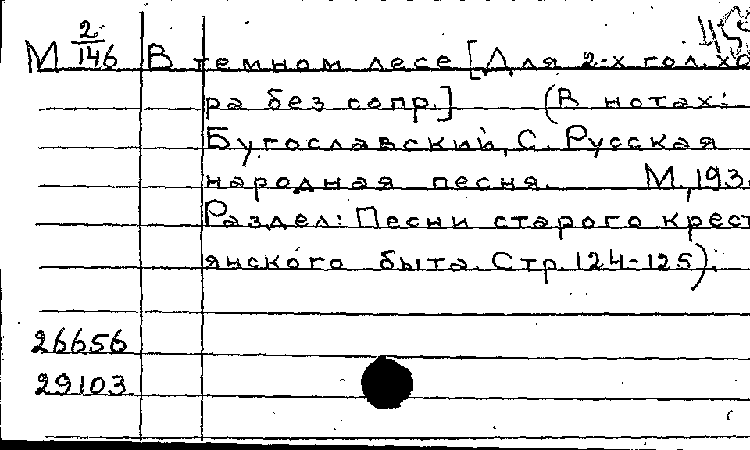 М 2/146 В темном лесе [Для 2-х гол. хо
ра без сопр.] (В нотах:
Бугославский, С. Русская
народная песня. М., 193
Раздел: Песни старого крест
янского быта. Стр. 124-125).
26656
29103